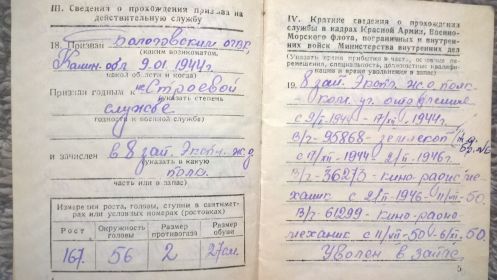 III. Сведения о прохождении призыва на
действительную службу
18. Призван Бологовским
(каким военкоматом,
Калин. обл 9.01 1944г
какой области и когда)
Признан годным к строевой
указать степень
службе
годности к военной службе)
и зачислен в 8 зап. ж.д.
указать в какую
полк
часть или в запас)
Измерения роста, головы, ступни в сантимет-
рах или условных номерах (ростовках)
Рост Окружность головы Размер противогаза Размер обуви
167 56 2 27см.
IV. Краткие сведения о прохождении
службы в кадрах Красной Армии, Военно-
Морского флота, пограничных и внутрен-
них войск Министерства внутренних дел
(Указать время прибытия в часть, основные пе-
ремещения, специальность, должностную квалифи-
кацию и время увольнения в запас)
19. 8 зап. ж.д. полк
В/ч 95868
В/ч 36273 - кино-радиоме-
ханик с
В/ч 61299 - кино-радио-
механик с
Уволен в запас.